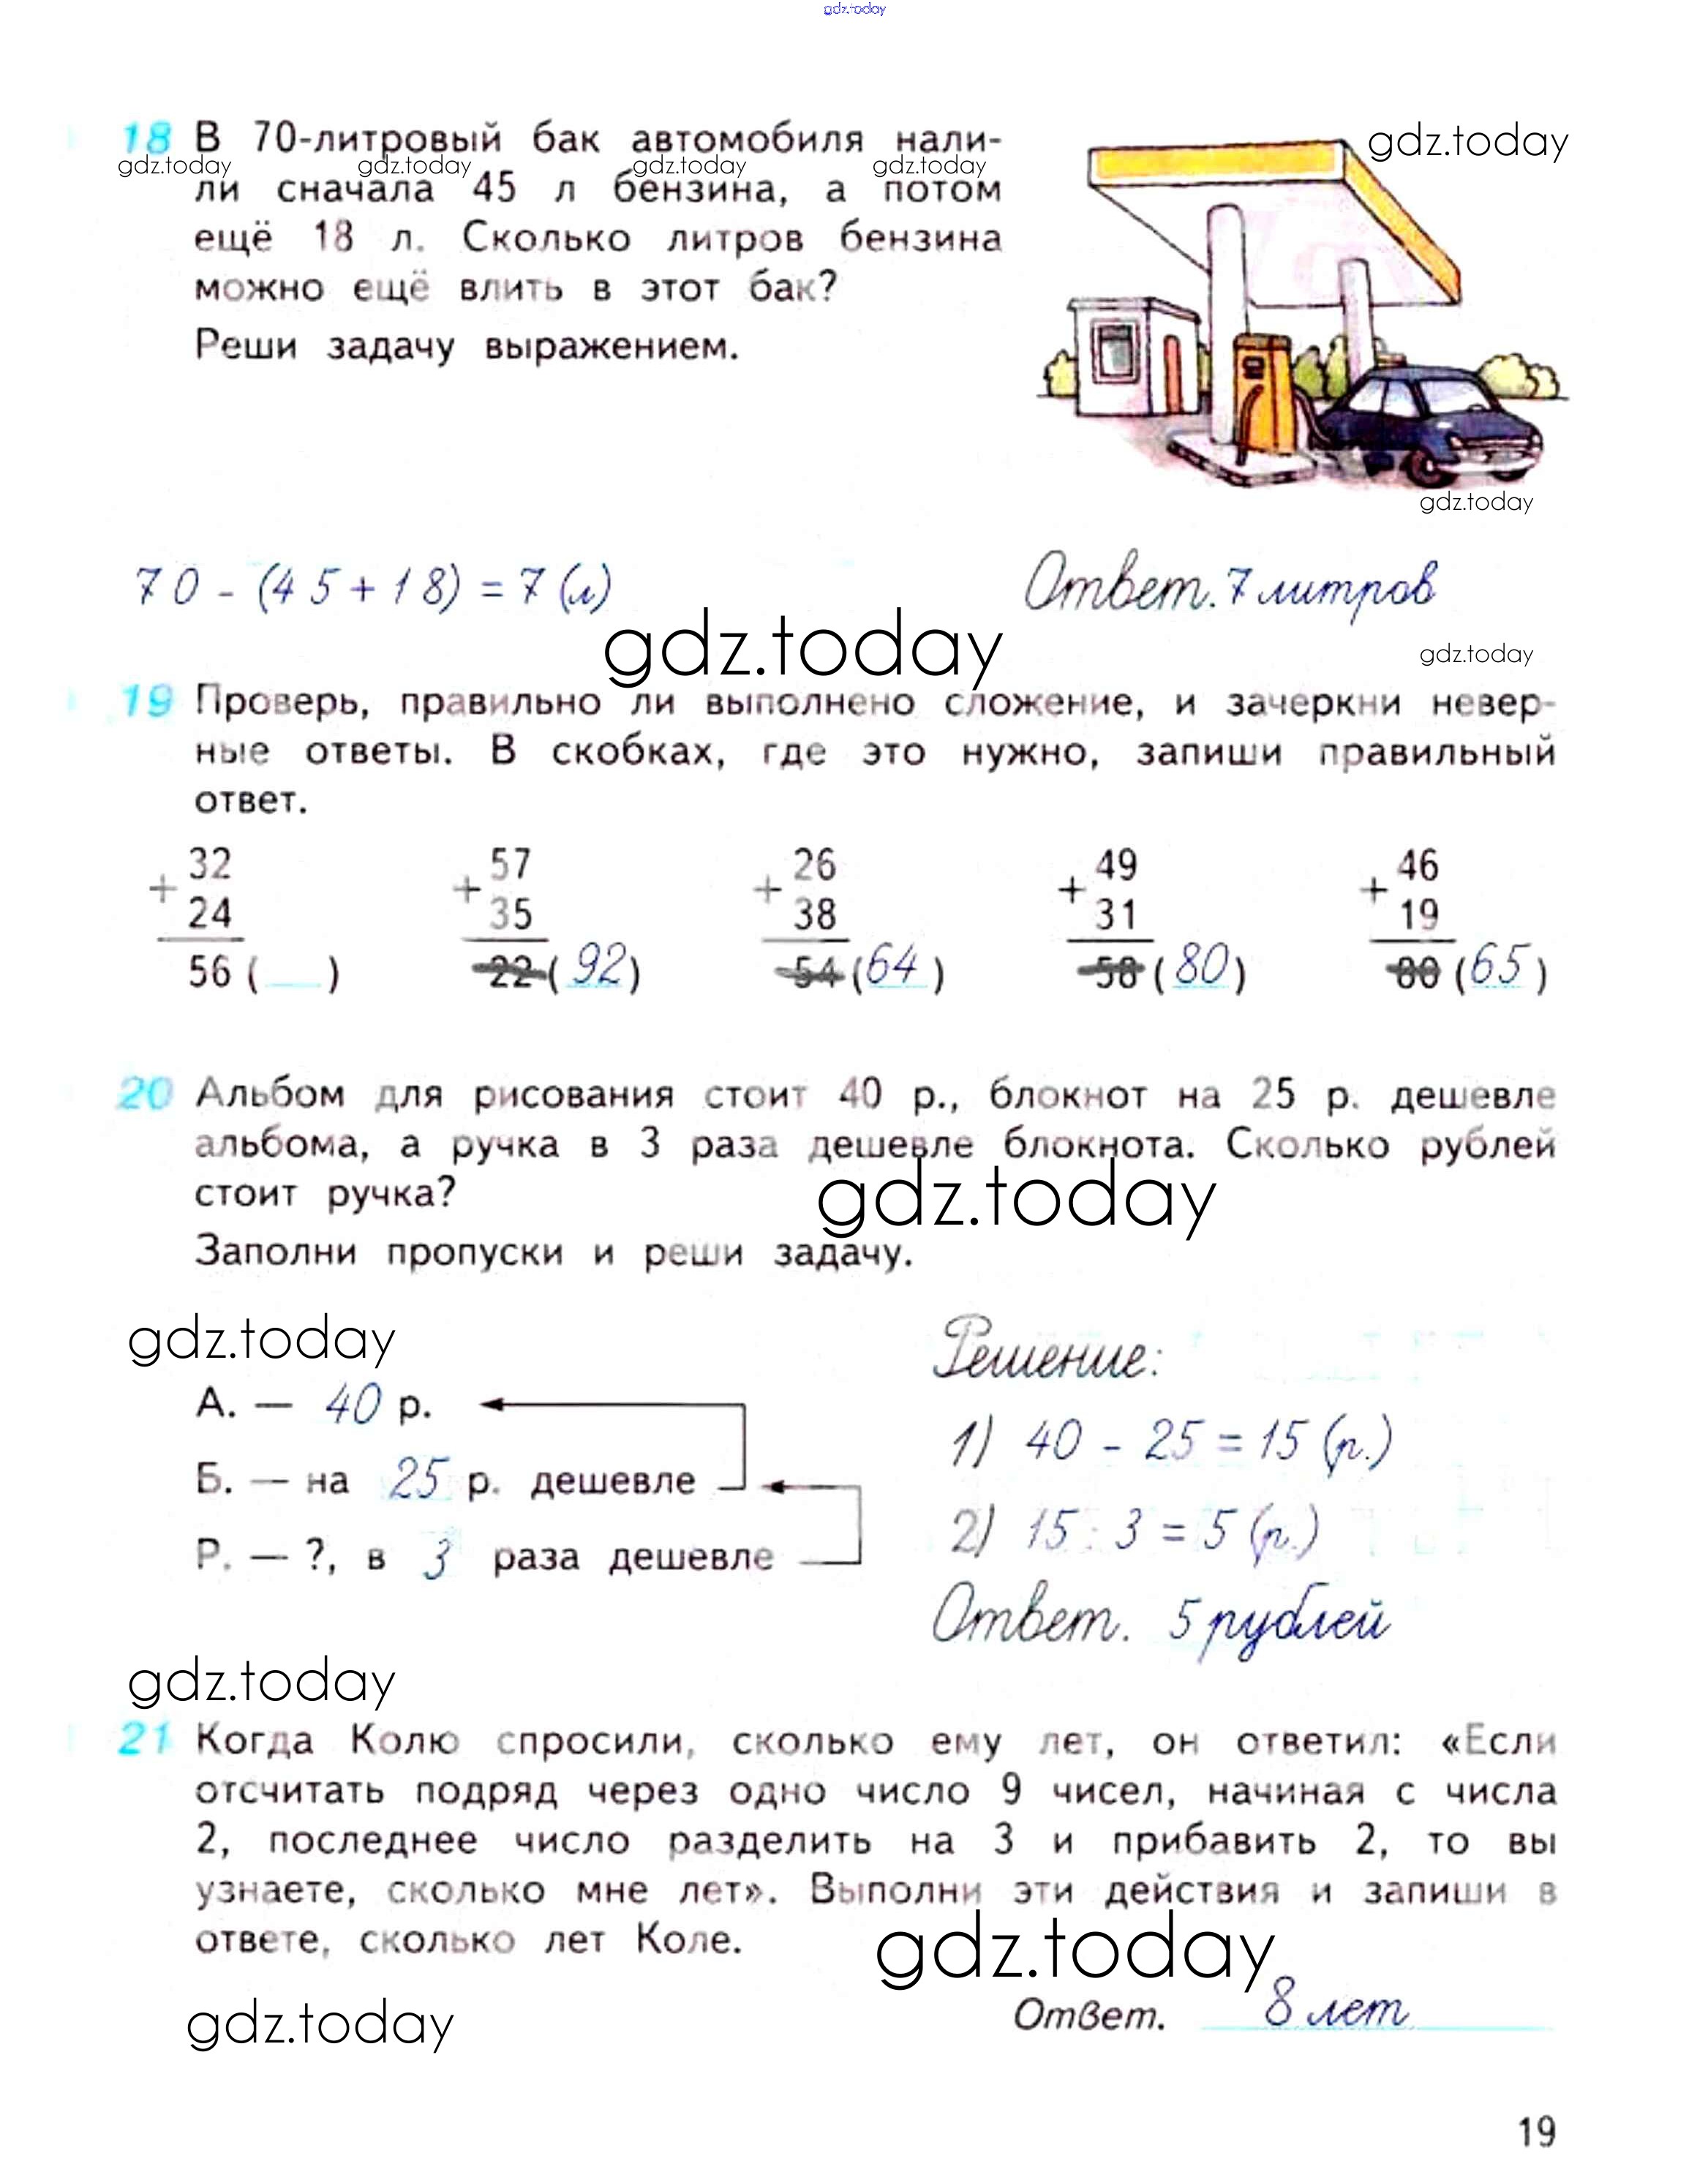 gdz.today
18 В 70-литровый бак автомобиля нали-
gdz.today
gdz.today gdz.today gdz.today gdz.today
ли сначала 45 л бензина, а потом
ещё 18 л. Сколько литров бензина
можно ещё влить в этот бак?
Реши задачу выражением.
gdz.today
70 - (45 + 18) = 7 (л) Ответ. 7 литров
gdz.today
gdz.today
19 Проверь, правильно ли выполнено сложение, и зачеркни невер-
ные ответы. В скобках, где это нужно, запиши правильный
ответ.
32 57 26 49 46
+ + + + +
24 35 38 31 19
56 ( ) 22 (92) 54 (64) 58 (80) 80 (65)
20 Альбом для рисования стоит 40 р., блокнот на 25 р. дешевле
альбома, а ручка в 3 раза дешевле блокнота. Сколько рублей
стоит ручка?
gdz.today
Заполни пропуски и реши задачу.
gdz.today
Решение:
А. — 40 р.
1) 40 - 25 = 15 (р.)
Б. — на 25 р. дешевле
2) 15 : 3 = 5 (р.)
Р. — ?, в 3 раза дешевле
Ответ. 5 рублей
gdz.today
21 Когда Колю спросили, сколько ему лет, он ответил: «Если
отсчитать подряд через одно число 9 чисел, начиная с числа
2, последнее число разделить на 3 и прибавить 2, то вы
узнаете, сколько мне лет». Выполни эти действия и запиши в
ответе, сколько лет Коле.
gdz.today
Ответ. 8 лет
gdz.today
19